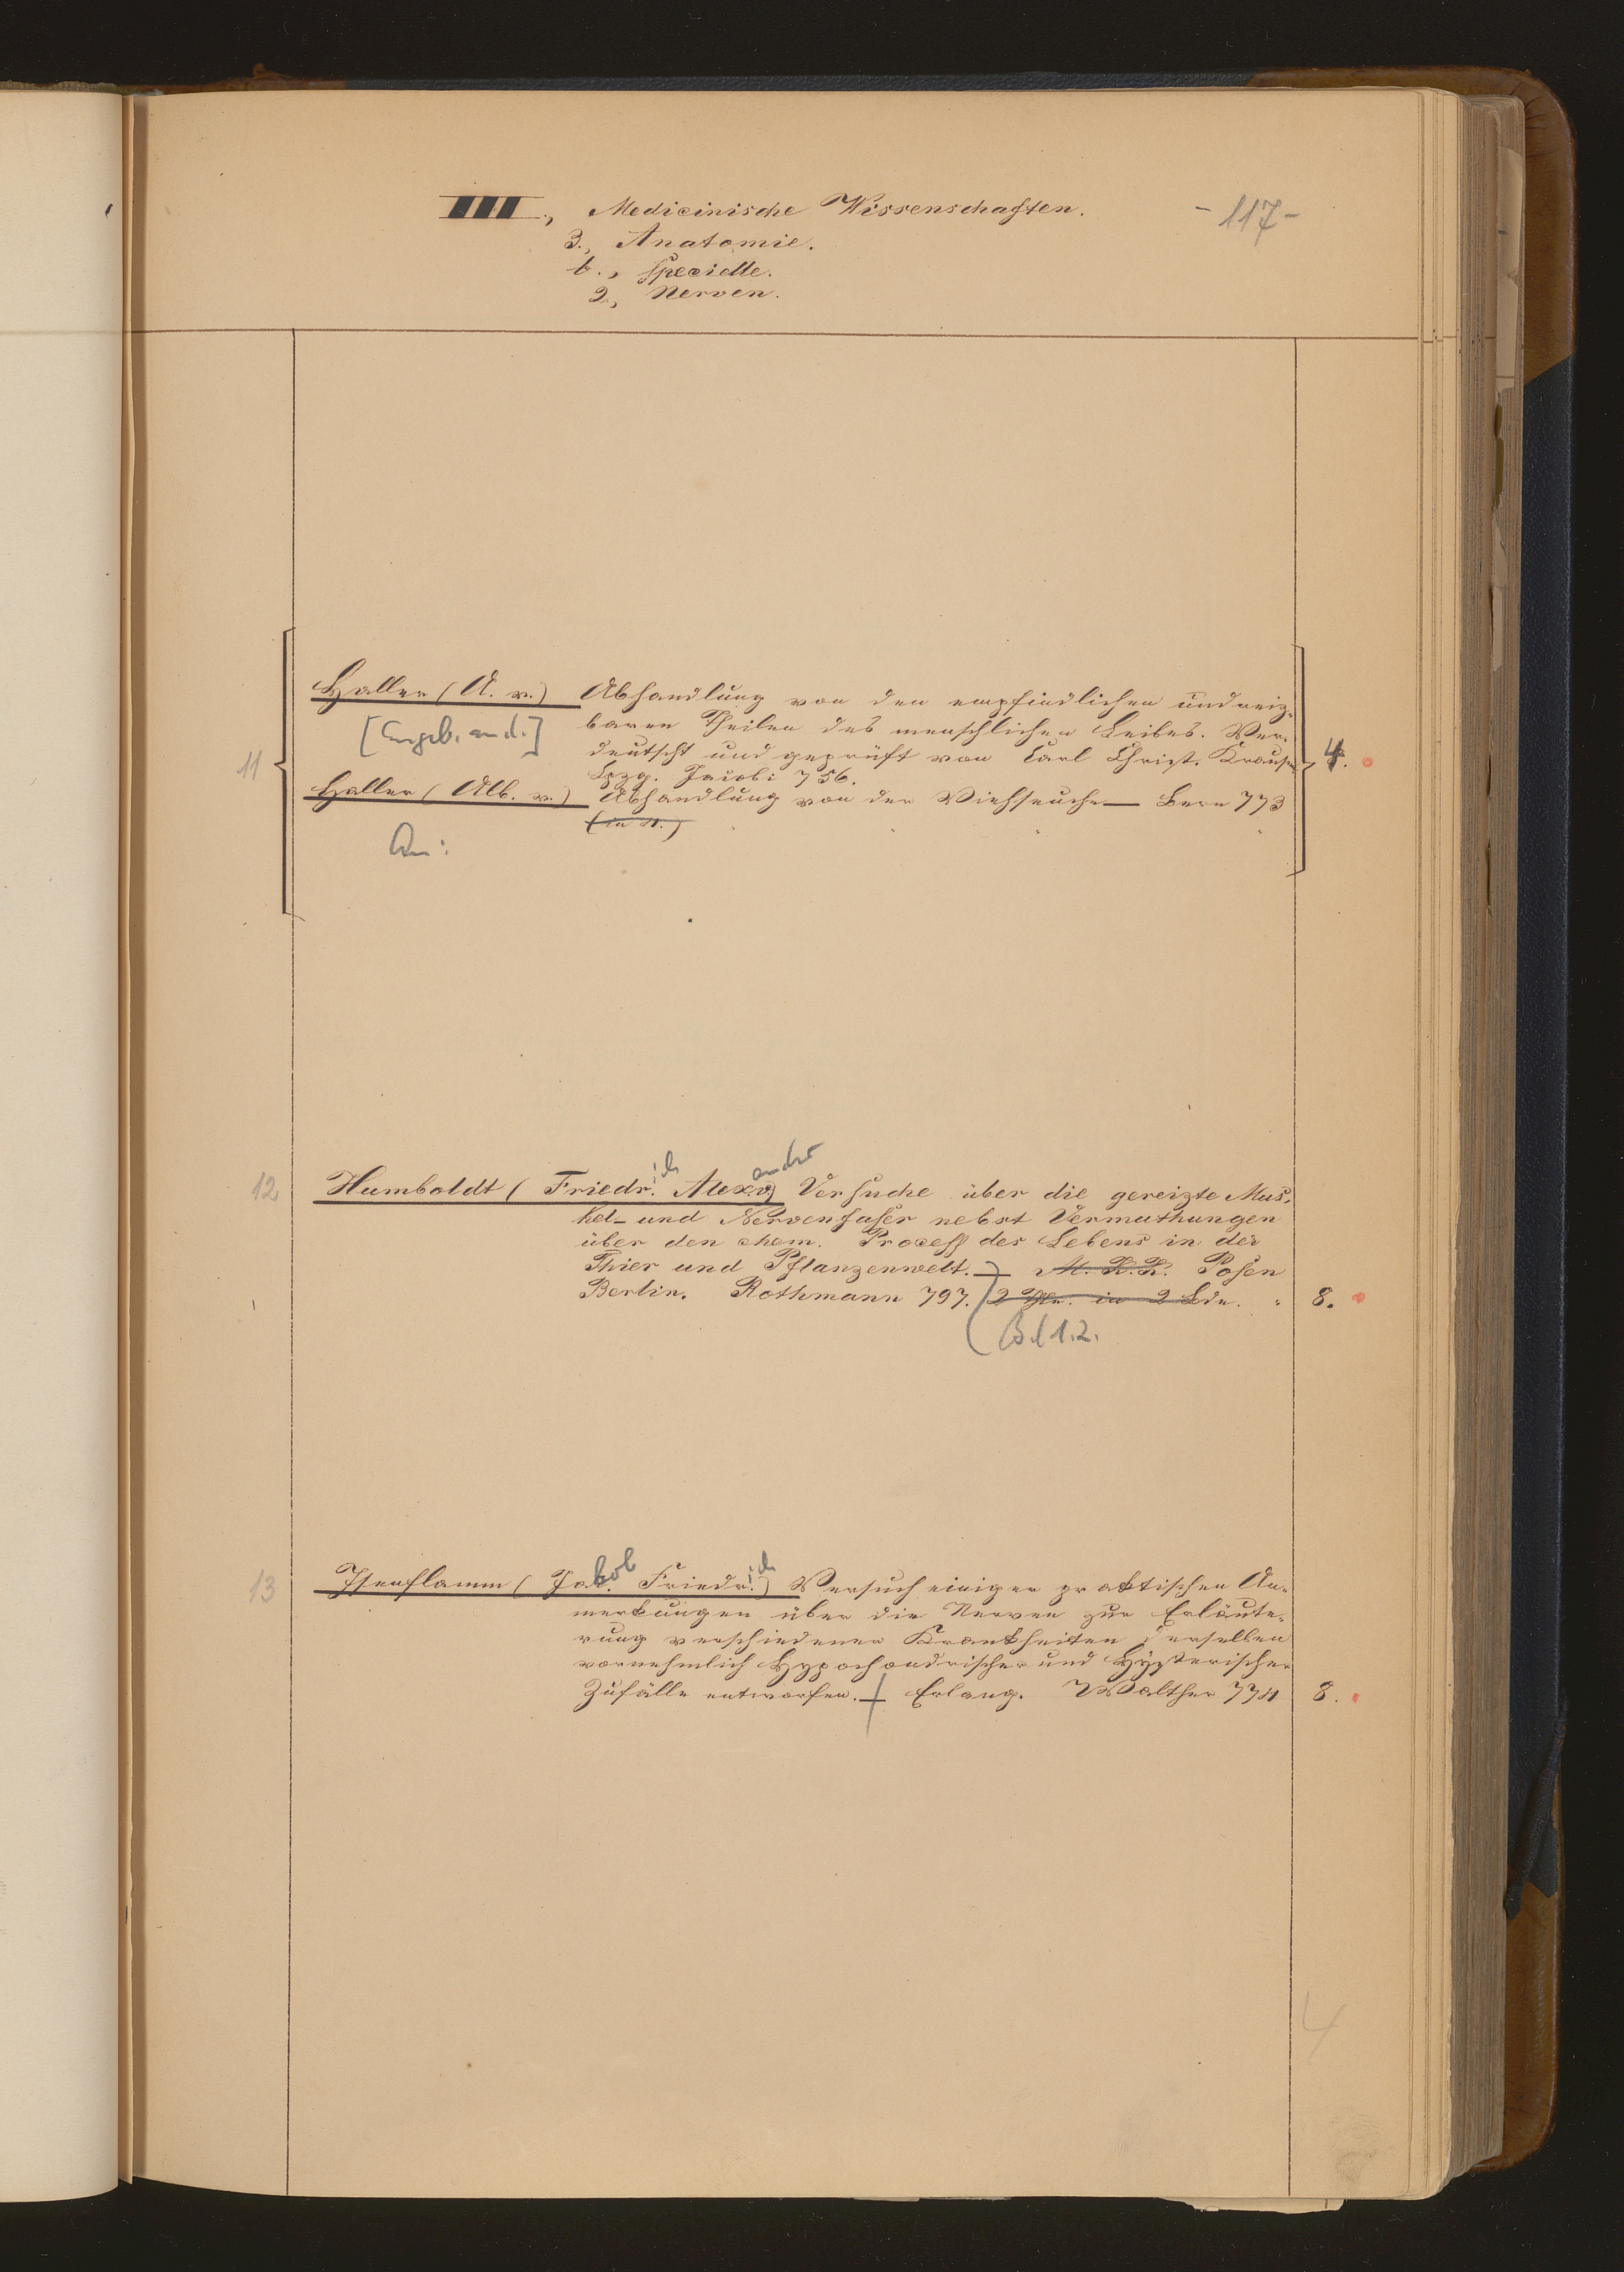 III., Medicinische Wissenschaften.
-117-
3., Anatomie.
b., Specielle.
2., Nerven.
11
Haller (A. v.) Abhandlung von den empfindlichen und reiz-
baren Theilen des menschlichen Leibes. Ver-
[Angeb. an d.]
deutscht und geprüft von Carl Christ. Krausen
4.
Lpzg. Jacobi 756.
Haller (Alb. v.) Abhandlung von der Viehseuche — Bern 773
(in 4.)
An:
12
Humboldt (Friedr.ich Alex.ander v.) Versuche über die gereizte Mus-
kel- und Nervenfaser nebst Vermuthungen
über den chem. Process des Lebens in der
Thier und Pflanzenwelt. — M. K. K. Posen
Berlin. Rothmann 797. 2 Thle. in 2 Bdn. 8.
Bd 1.2.
13
Isenflamm (Jakob Friedr.ich) Versuch einiger praktischen An-
merkungen über die Nerven zur Erläute-
rung verschiedener Krankheiten derselben
vornehmlich Hypochondrischer und Hysterischer
Zufälle entworfen. — Erlang. Walther 774 8.
4